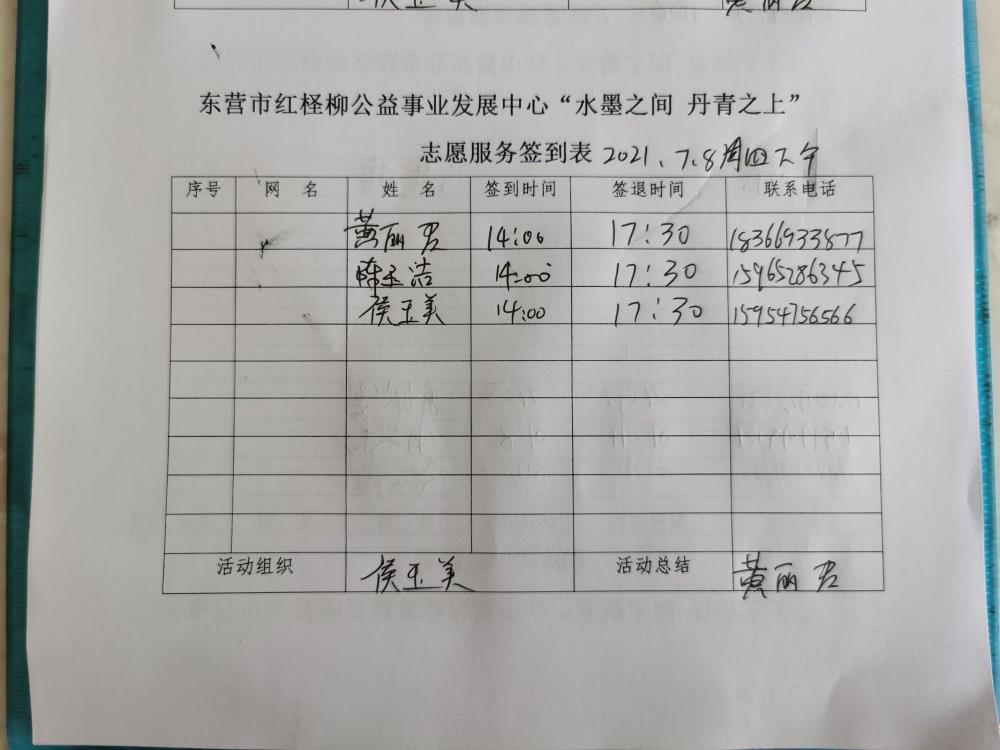 侯玉美 黄丽君
东营市红柽柳公益事业发展中心“水墨之间 丹青之上”
志愿服务签到表 2021.7.8周四下午
序号 网 名 姓 名 签到时间 签退时间 联系电话
黄丽君 14:00 17:30 18366933877
陈玉洁 14:00 17:30 15965286345
侯玉美 14:00 17:30 15954756566
活动组织 侯玉美 活动总结 黄丽君